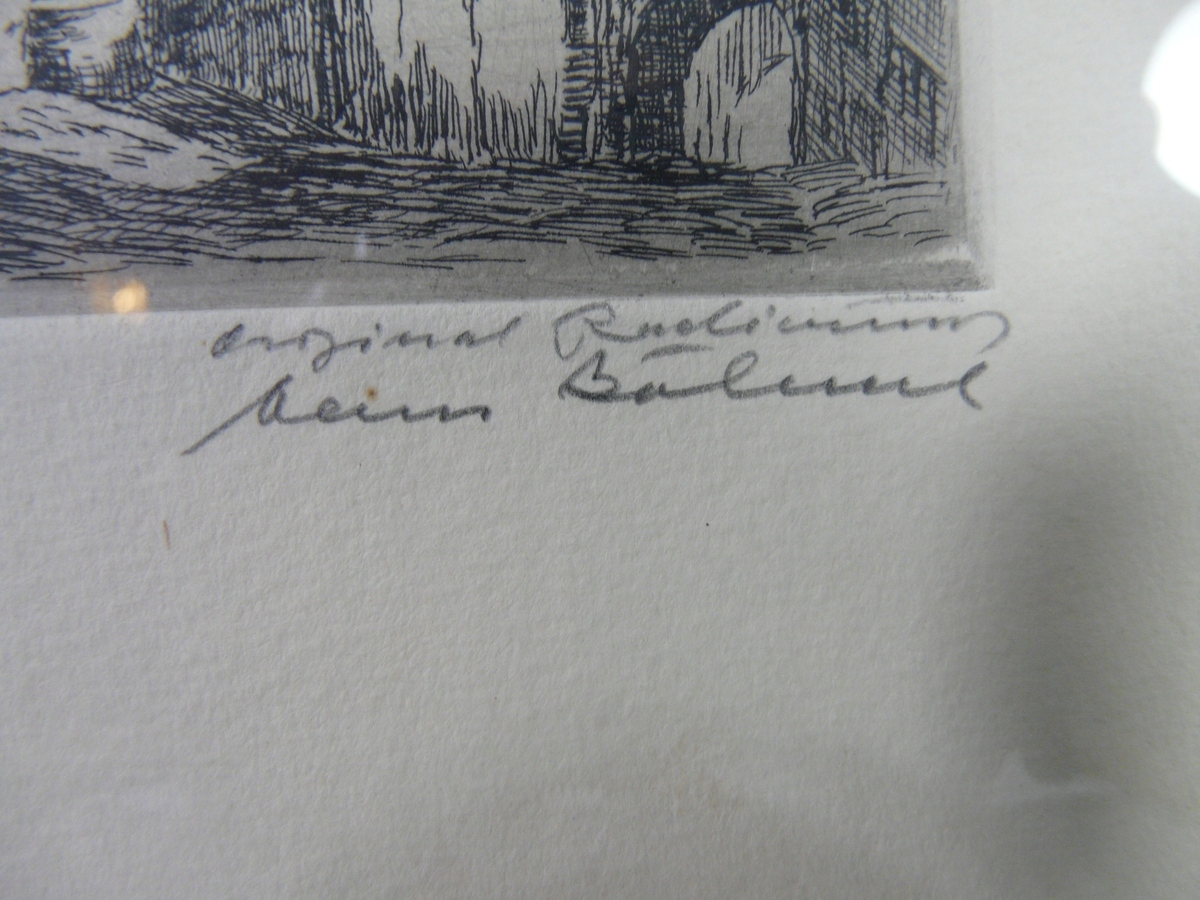 original Radierung
Heinz Böhme